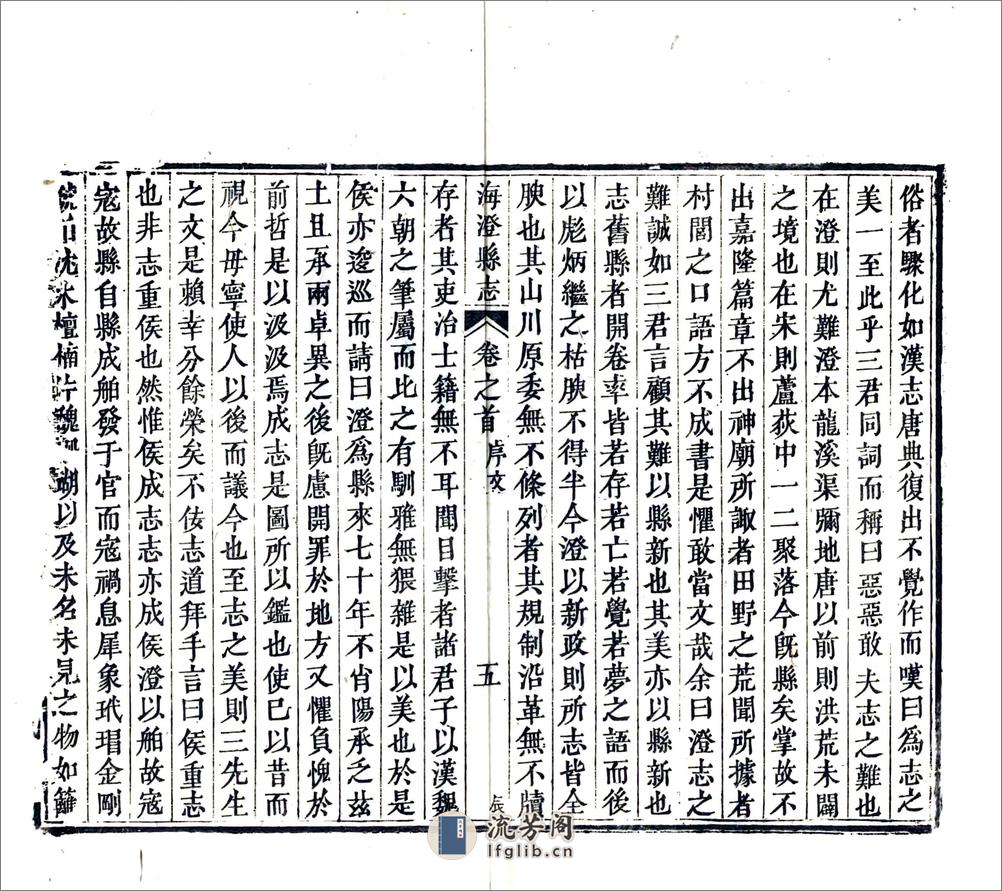 俗者驟化如漢志唐典復出不覺作而嘆曰爲志之
美一至此乎三君同詞而稱曰惡惡敢夫志之難也
在澄則尤難澄本龍溪渠彌地唐以前則洪荒未闢
之境也在宋則蘆荻中一二聚落今旣縣矣掌故不
出嘉隆篇章不出神廟所諏者田野之荒聞所據者
村閭之口語方不成書是懼敢當文哉余曰澄志之
難誠如三君言顧其難以縣新也其美亦以縣新也
志舊縣者開卷率皆若存若亡若覺若夢之語而後
以彪炳繼之枯腴不得半今澄以新政則所志皆全
腴也其山川原委無不條列者其規制沿革無不牘
海澄縣志 卷之首 序文 五
存者其吏治士籍無不耳聞目擊者諸君子以漢魏
六朝之筆屬而比之有馴雅無猥雜是以美也於是
侯亦逡巡而請曰澄爲縣來七十年不肖陽承乏茲
土且承兩卓異之後旣慮開罪於地方又懼負愧於
前哲是以汲汲焉成志是圖所以鑑也使已以昔而
視今毋寧使人以後而議今也至志之美則三先生
之文是賴幸分餘榮矣不佞志道拜手言曰侯重志
也非志重侯也然惟侯成志志亦成侯澄以舶故寇
寇故縣自縣成舶發于官而寇禍息犀象玳瑁金剛
沈水檀楠 以及未名未見之物如籬
流芳阁
lfglib.cn